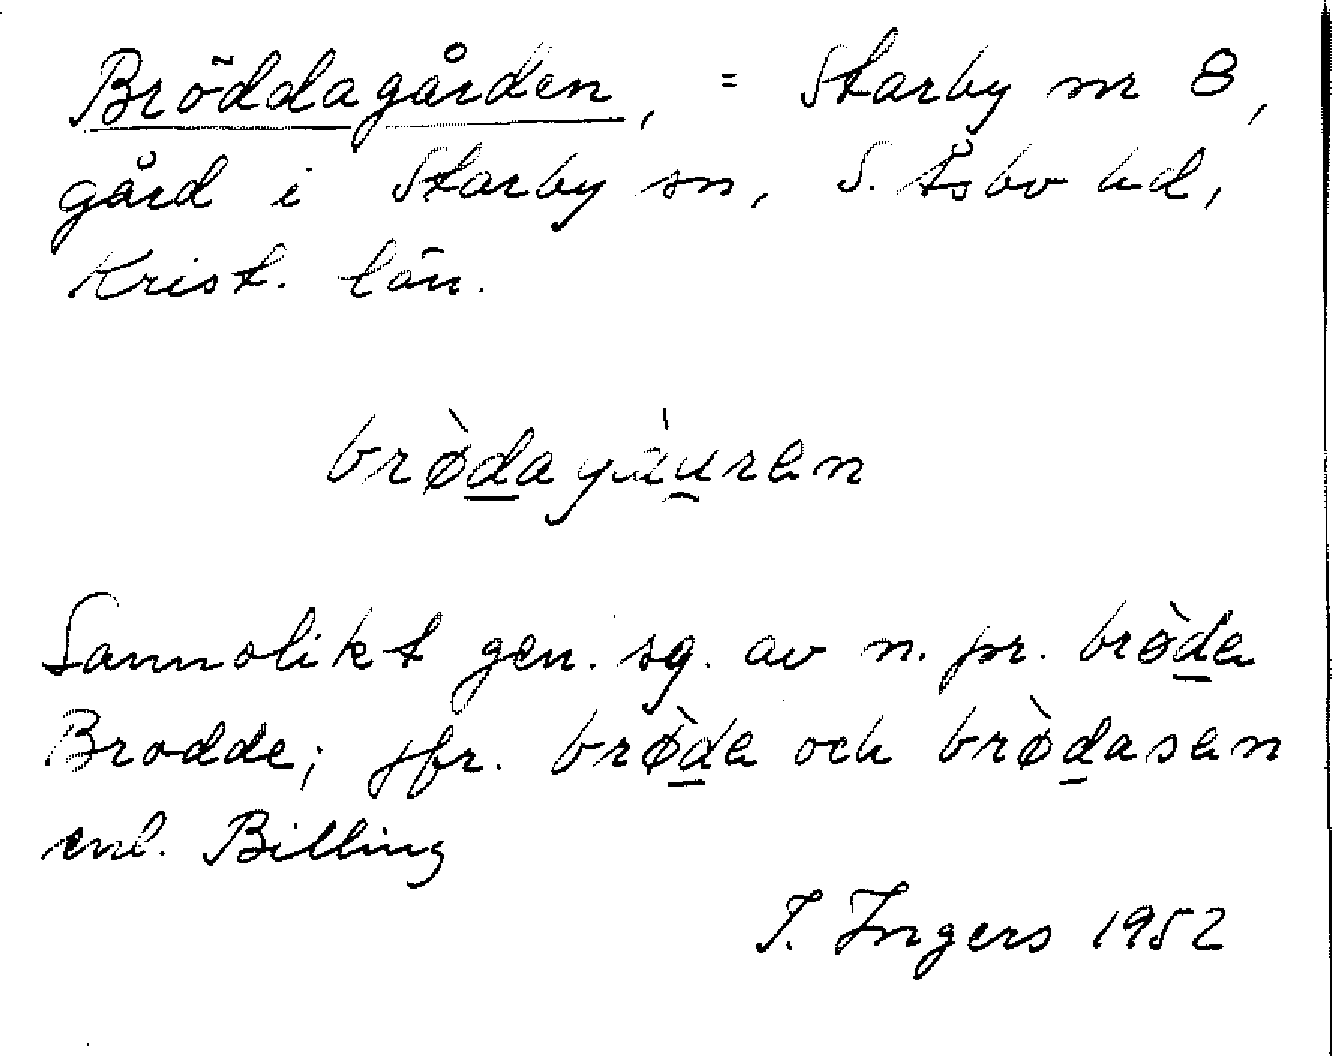 Bröddagården, = Starby nr 8,
gård i Starby sn, S. Åsbo hd,
Krist. län.
brø̀d̲aγàu̯ren
Sannolikt gen. sg. av n. pr. brø̀d̲e
Brodde; jfr. brø̀d̲e och brø̀d̲asen
enl. Billing
I. Ingers 1952